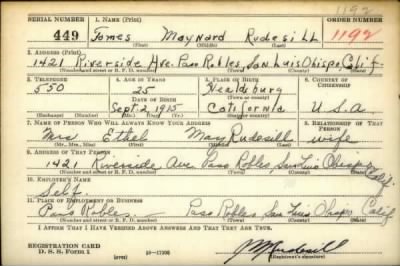 1192
SERIAL NUMBER 1. NAME (Print) ORDER NUMBER
449 James Maynard Rudesill 1192
(First) (Middle) (Last)
2. ADDRESS (Print)
1421 Riverside Ave. Paso Robles, San Luis Obispo, Calif.
(Number and street or R. F. D. number) (Town) (County) (State)
3. TELEPHONE 4. AGE IN YEARS 5. PLACE OF BIRTH 6. COUNTRY OF CITIZENSHIP
550 25 Healdsburg
DATE OF BIRTH (Town or county)
Sept. 2, 1915 California U.S.A.
(Mo.) (Day) (Yr.) (State or country)
7. NAME OF PERSON WHO WILL ALWAYS KNOW YOUR ADDRESS 8. RELATIONSHIP OF THAT PERSON
Mrs Ethel May Rudesill wife
(Mr., Mrs., Miss) (First) (Middle) (Last)
9. ADDRESS OF THAT PERSON
1421 Riverside Ave Paso Robles, San Luis Obispo, Calif.
(Number and street or R. F. D. number) (Town) (County) (State)
10. EMPLOYER'S NAME
Self.
11. PLACE OF EMPLOYMENT OR BUSINESS
Paso Robles — Paso Robles, San Luis Obispo Calif
(Number and street or R. F. D. number) (Town) (County) (State)
I AFFIRM THAT I HAVE VERIFIED ABOVE ANSWERS AND THAT THEY ARE TRUE.
REGISTRATION CARD
D. S. S. Form 1 (over) JM Rudesill
(Registrant's signature)